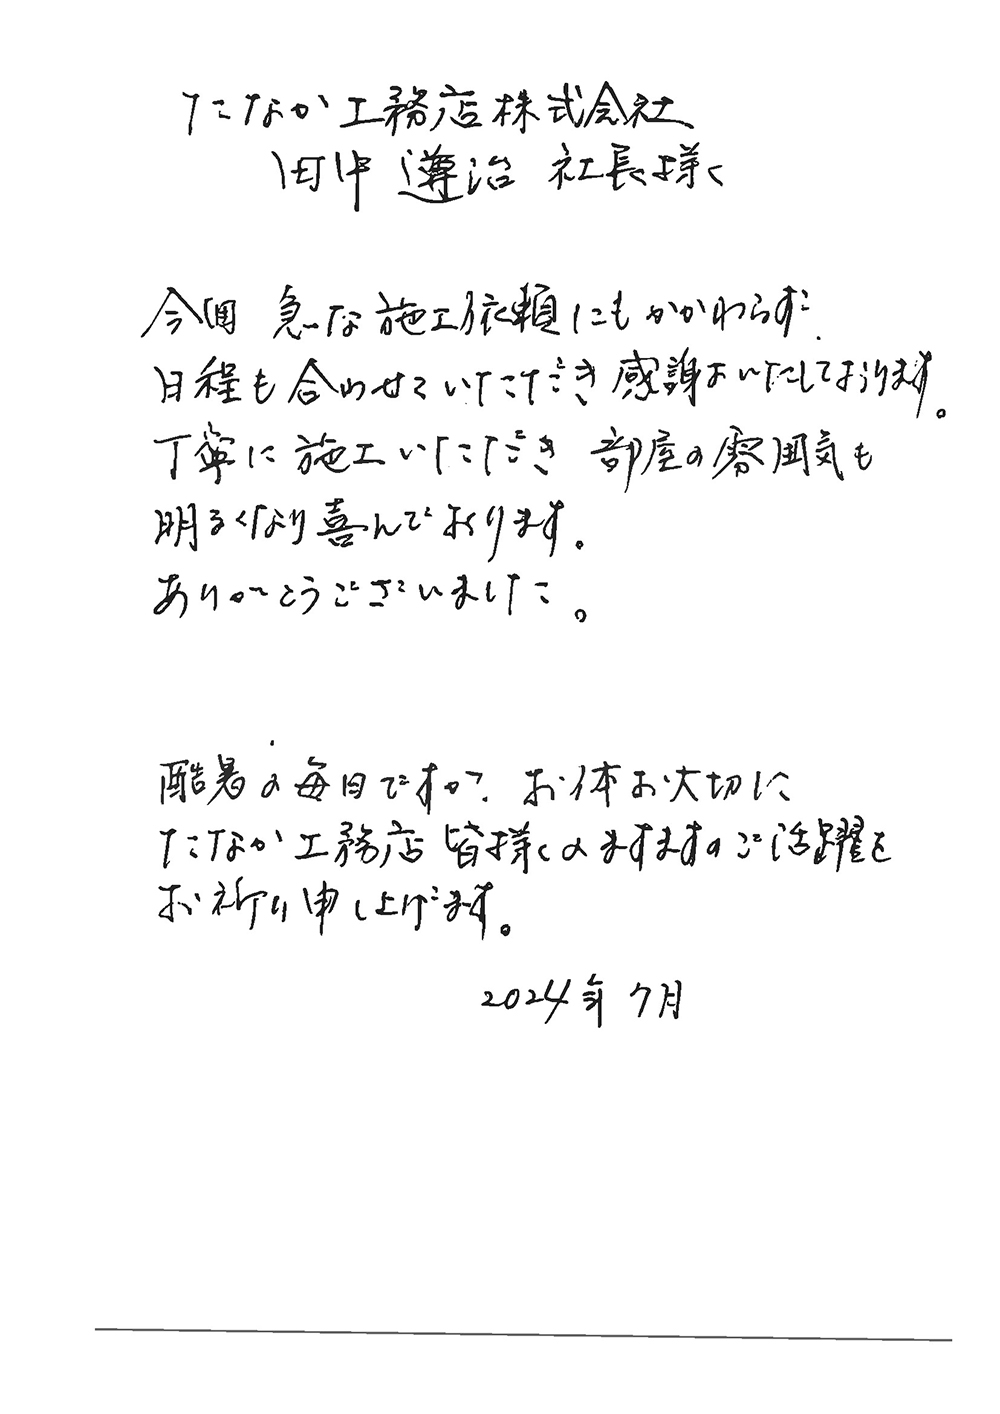 たなか工務店株式会社
田中 遵治 社長様
今回 急な施工依頼にもかかわらず
日程も合わせていただき感謝いたしております。
丁寧に施工いただき 部屋の雰囲気も
明るくなり喜んでおります。
ありがとうございました。
酷暑の毎日ですが、お体お大切に
たなか工務店 皆様のますますのご活躍を
お祈り申し上げます。
2024年 7月